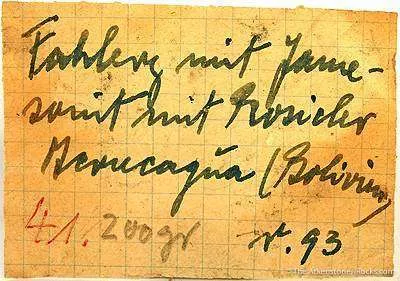 Fahlerz mit Jame-
sonit mit Rosicler
Aconcagua (Bolivien)
41. 200gr v. 93
The Arkenstone, iRocks.com